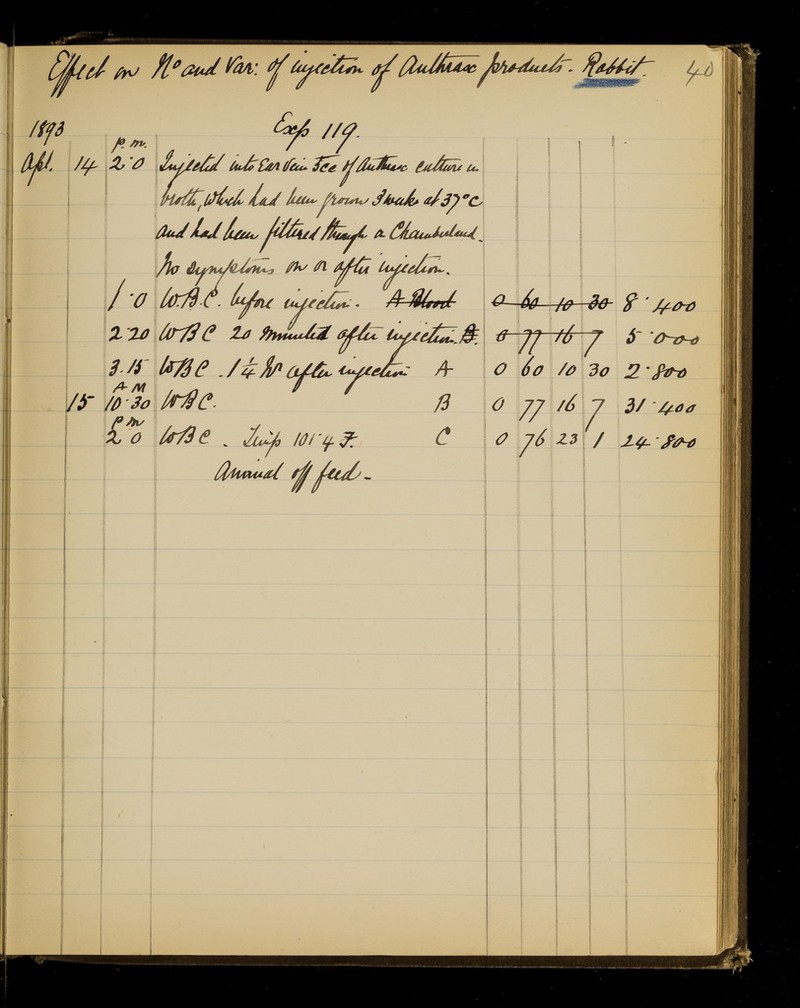 Effect on No and Var: of injection of Anthrax products - Rabbit. 40
1893 Exp 119.
p.m.
Apl. 14 2·0 Injected into Ear Vein 5cc of Anthrax culture in
broth, which had been grown 3 weeks at 37°C
and had been filtered through a Chamberland.
No symptoms on or after injection.
1·0 W.B.C. before injection. A Blood 0 60 10 30 8·400
2·20 WBC 20 minutes after injection. B. 0 77 16 7 5·000
3·15 WBC. 1¼ hr after injection A 0 60 10 30 2·800
A M
15 10·30 WBC. B 0 77 16 7 31·400
P m
2 0 WBC. Temp 101·4 F. C 0 76 23 1 24·800
Animal off feed -